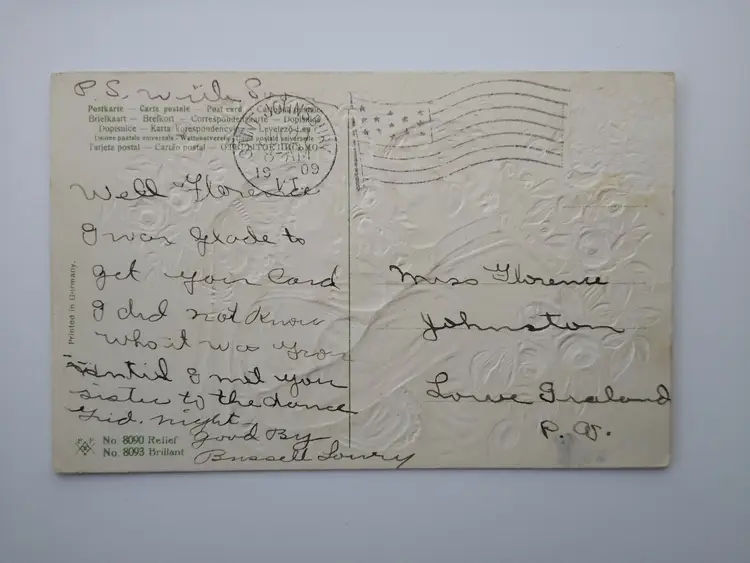 P.S. write
Postkarte — Carte postale — Post card — Cartolina postale
Briefkaart — Brefkort — Correspondenzkarte — Dopisnice
Dopisnice — Karta korespondencyjna — Levelező-Lap
Tarjeta postal — Cartão postal — ОТКРЫТОЕ ПИСЬМО
19 09
VT.
Well Florence
I was glade to
get your Card
I did not Know
who it was from
until I met you
sister to the dance
Frid. night.
Good By
Russell Lowry
Printed in Germany.
No. 8090 Relief
No. 8093 Brillant
Miss Florence
Johnston